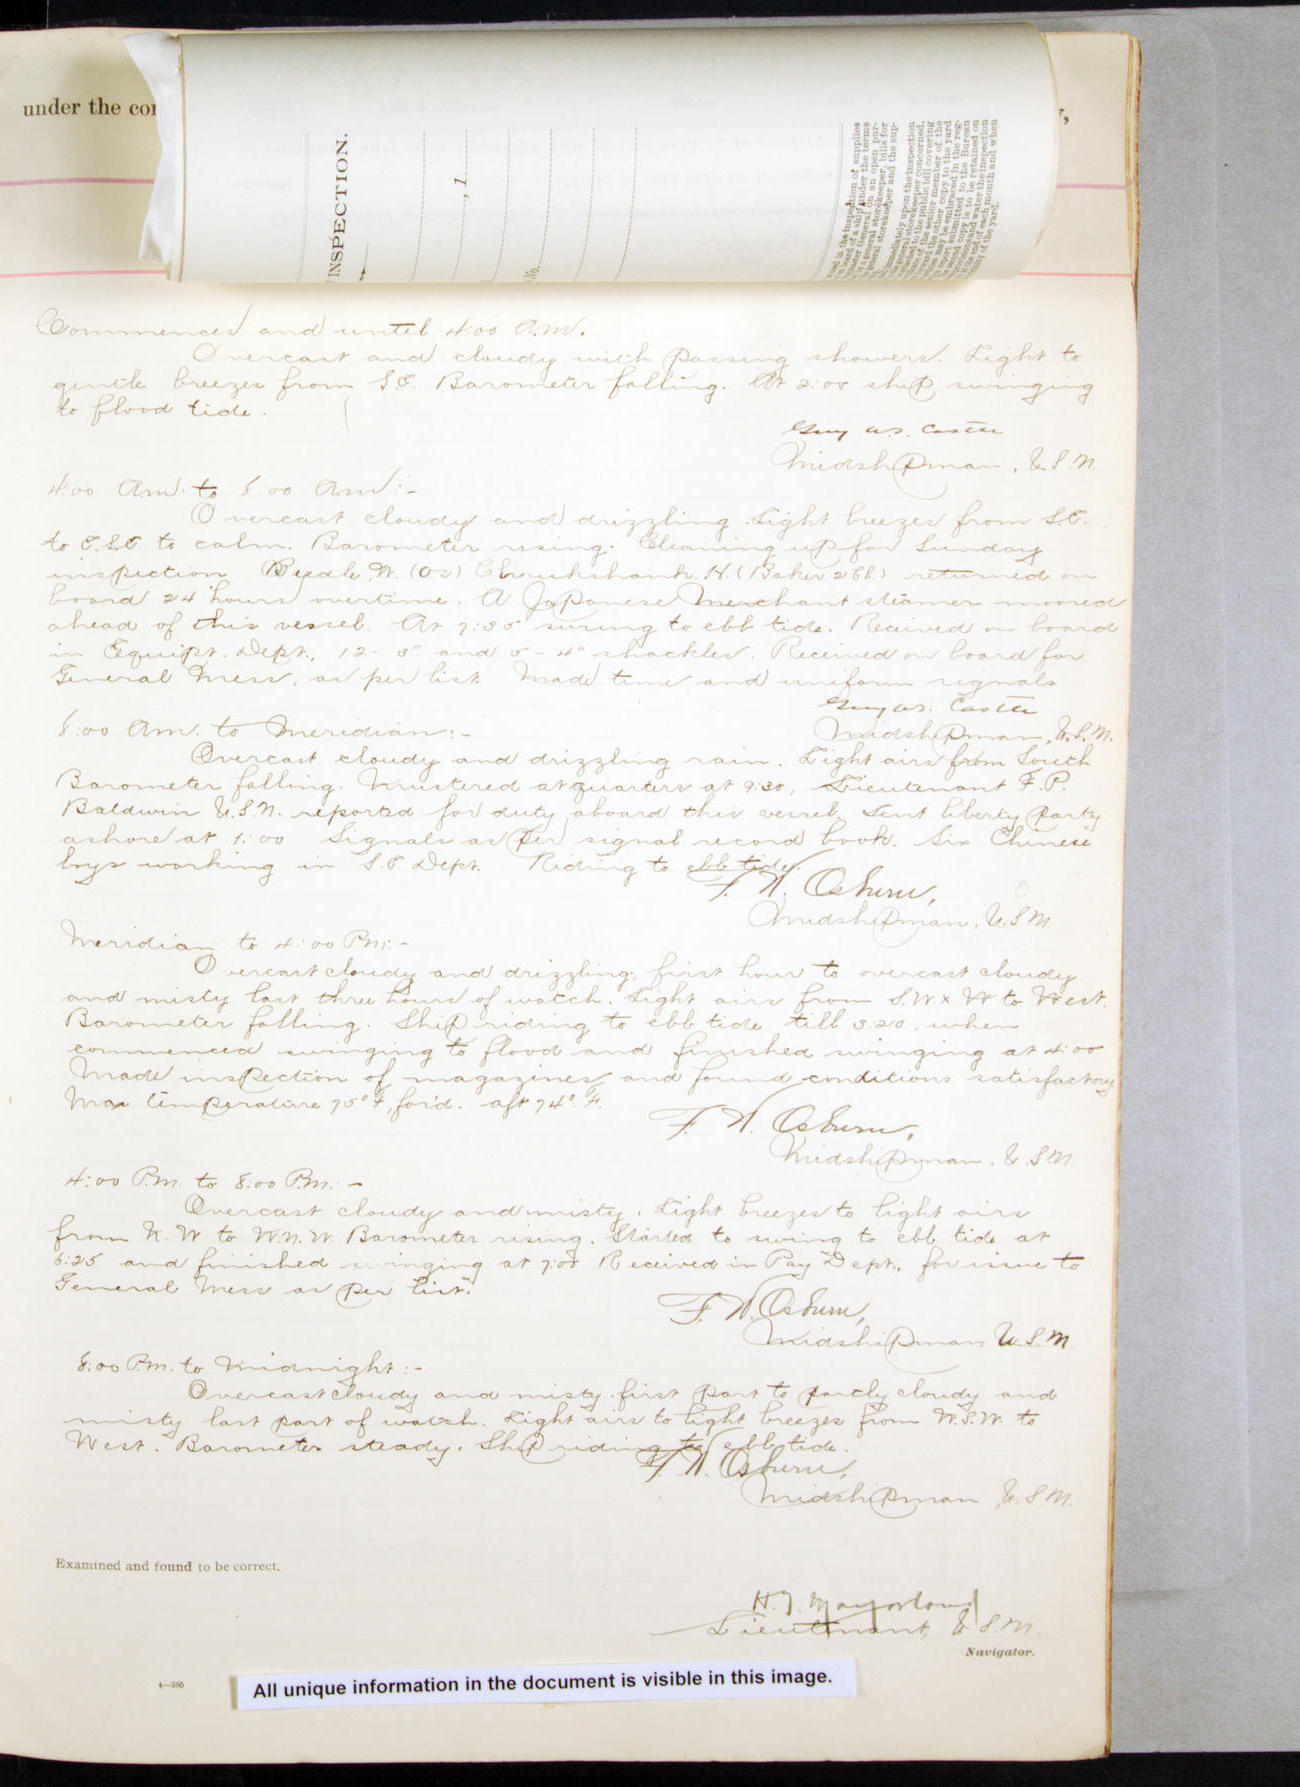 under the con
INSPECTION.
, 1
No.
Commences and until 4:00 A.M.
Overcast and cloudy with passing showers. Light to
gentle breezes from S.E. Barometer falling. At 2:00 ship swinging
to flood tide.
Guy W.S. Castle
Midshipman, U.S.N.
4:00 A.M. to 8:00 A.M.:-
Overcast cloudy and drizzling. Light breezes from S.E.
to E.S.E. to calm. Barometer rising. Cleaning up for Sunday
inspection. Beedle, W. (Os) Cruikshank, H. (Baker 2 Cl.) returned on
board 24 hours overtime. A Japanese Merchant steamer moored
ahead of this vessel. At 7:30 swung to ebb tide. Received on board
in Equipt. Dept., 12 - 3" and 5 - 4" shackles. Received on board for
General Mess, as per list. Made time and uniform signals
Guy W.S. Castle
Midshipman, U.S.N.
8:00 A.M. to Meridian:-
Overcast cloudy and drizzling rain. Light airs from South
Barometer falling. Mustered at quarters at 9:30, Lieutenant F.P.
Baldwin U.S.N. reported for duty aboard this vessel. Sent liberty party
ashore at 1:00 Signals as per signal record book. Six Chinese
boys working in S.E. Dept. Riding to ebb tide.
F. W. Osburn,
Midshipman, U.S.N.
Meridian to 4:00 P.M.:-
Overcast cloudy and drizzling, first hour to overcast cloudy
and misty last three hours of watch. Light airs from S.W. x W to West.
Barometer falling. Ship riding to ebb tide till 3:20, when
commenced swinging to flood and finished swinging at 4:00
Made inspection of magazines and found conditions satisfactory
Max temperature 75° F, for'd. aft 74° F.
F. W. Osburn,
Midshipman, U.S.N.
4:00 P.M. to 8:00 P.M.:-
Overcast cloudy and misty. Light breezes to light airs
from N.W to W.N.W. Barometer rising. Started to swing to ebb tide at
6:25 and finished swinging at 7:05 Received in Pay Dept., for issue to
General Mess as per list.
F. W. Osburn,
Midshipman U.S.N.
8:00 P.M. to Midnight:-
Overcast cloudy and misty first part to partly cloudy and
misty last part of watch. Light airs to light breezes from W.S.W. to
West. Barometer steady. Ship riding to ebb tide.
F. W. Osburn,
Midshipman, U.S.N.
Examined and found to be correct.
Lieutenant, U.S.N.
Navigator.
All unique information in the document is visible in this image.